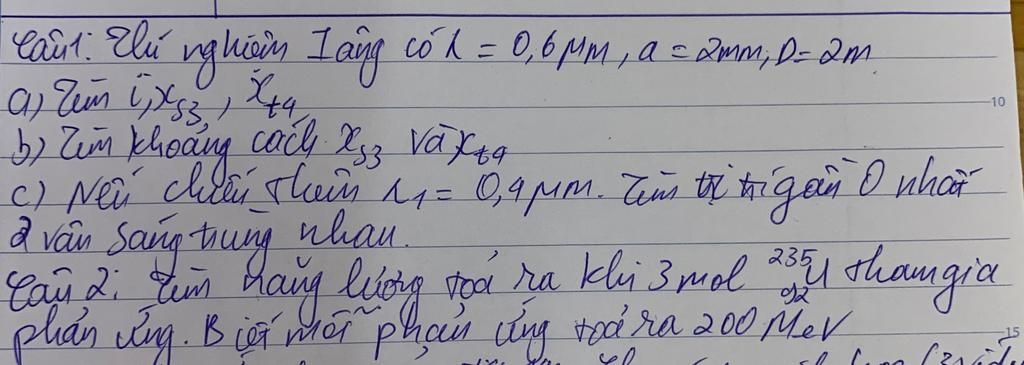 Câu 1: Thí nghiệm Iâng có λ = 0,6 μm, a = 2mm, D = 2m
a) Tìm i, xs3, xt4
b) Tìm khoảng cách xs3 và xt4
c) Nếu chiếu thêm λ1 = 0,4 μm. Tìm vị trí gần O nhất
2 vân sáng trùng nhau.
Câu 2: Tìm năng lượng toả ra khi 3 mol ²³⁵₉₂U tham gia
phản ứng. Biết mỗi phản ứng toả ra 200 MeV
10
15